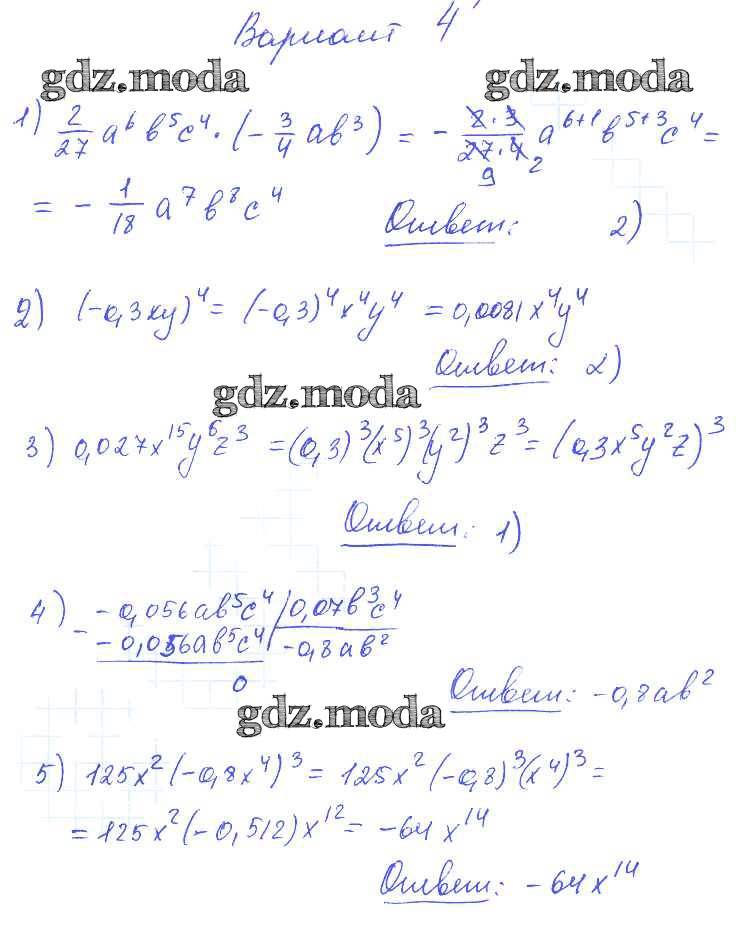 Вариант 4
gdz.moda gdz.moda
1) 2/27 a⁶b⁵c⁴ · (- 3/4 ab³) = - 2·3/27·4 a⁶⁺¹b⁵⁺³c⁴ =
9 2
= - 1/18 a⁷b⁸c⁴ Ответ: 2)
2) (-0,3xy)⁴ = (-0,3)⁴x⁴y⁴ = 0,0081x⁴y⁴
Ответ: 2)
gdz.moda
3) 0,027x¹⁵y⁶z³ = (0,3)³(x⁵)³(y²)³z³ = (0,3x⁵y²z)³
Ответ: 1)
4) - -0,056ab⁵c⁴ | 0,07b³c⁴
-0,056ab⁵c⁴ | -0,8ab²
0
Ответ: -0,8ab²
gdz.moda
5) 125x²(-0,8x⁴)³ = 125x²(-0,8)³(x⁴)³ =
= 125x²(-0,512)x¹² = -64x¹⁴
Ответ: -64x¹⁴